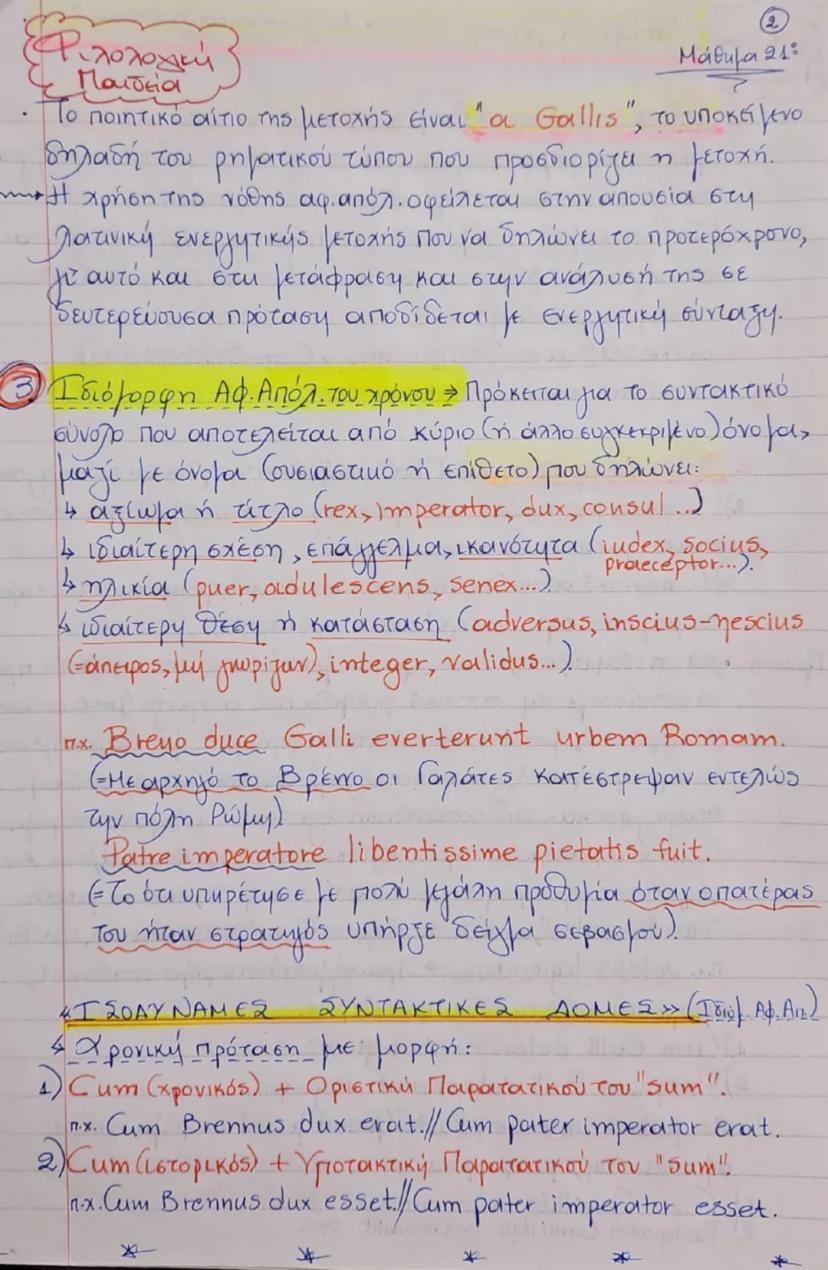 ②
Φιλολογική
Παιδεία
Μάθημα 21°
· Το ποιητικό αίτιο της μετοχής είναι "a Gallis", το υποκείμενο
δηλαδή του ρηματικού τύπου που προσδιορίζει η μετοχή.
→ Η χρήση της νόθης αφ.απόλ. οφείλεται στην απουσία στη
λατινική ενεργητικής μετοχής που να δηλώνει το προτερόχρονο,
γι' αυτό και στη μετάφραση και στην ανάλυσή της σε
δευτερεύουσα πρόταση αποδίδεται με ενεργητική σύνταξη.
③ Ιδιόμορφη Αφ.Απόλ. του χρόνου → Πρόκειται για το συντακτικό
σύνολο που αποτελείται από κύριο (ή άλλο συγκεκριμένο) όνομα,
μαζί με όνομα (ουσιαστικό ή επίθετο) που δηλώνει:
↳ αξίωμα ή τίτλο (rex, imperator, dux, consul ...)
↳ ιδιαίτερη σχέση, επάγγελμα, ικανότητα (iudex, socius,
praeceptor...).
↳ ηλικία (puer, adulescens, senex...)
↳ ιδιαίτερη θέση ή κατάσταση (adversus, inscius-nescius
(=άπειρος, μή γνωρίζων), integer, validus...)
π.χ. Breno duce Galli everterunt urbem Romam.
(=Με αρχηγό το Βρέννο οι Γαλάτες κατέστρεψαν εντελώς
την πόλη Ρώμη)
Patre imperatore libentissime pietatis fuit.
(=Το ότι υπηρέτησε με πολύ μεγάλη προθυμία όταν ο πατέρας
του ήταν στρατηγός υπήρξε δείγμα σεβασμού).
«ΙΣΟΔΥΝΑΜΕΣ ΣΥΝΤΑΚΤΙΚΕΣ ΔΟΜΕΣ» (Ιδιόμ. Αφ. Απ.)
↳ Χρονική πρόταση με μορφή:
1) Cum (χρονικός) + Οριστική Παρατατικού του "sum".
π.χ. Cum Brennus dux erat. // Cum pater imperator erat.
2) Cum (ιστορικός) + Υποτακτική Παρατατικού του "sum".
π.χ. Cum Brennus dux esset. // Cum pater imperator esset.